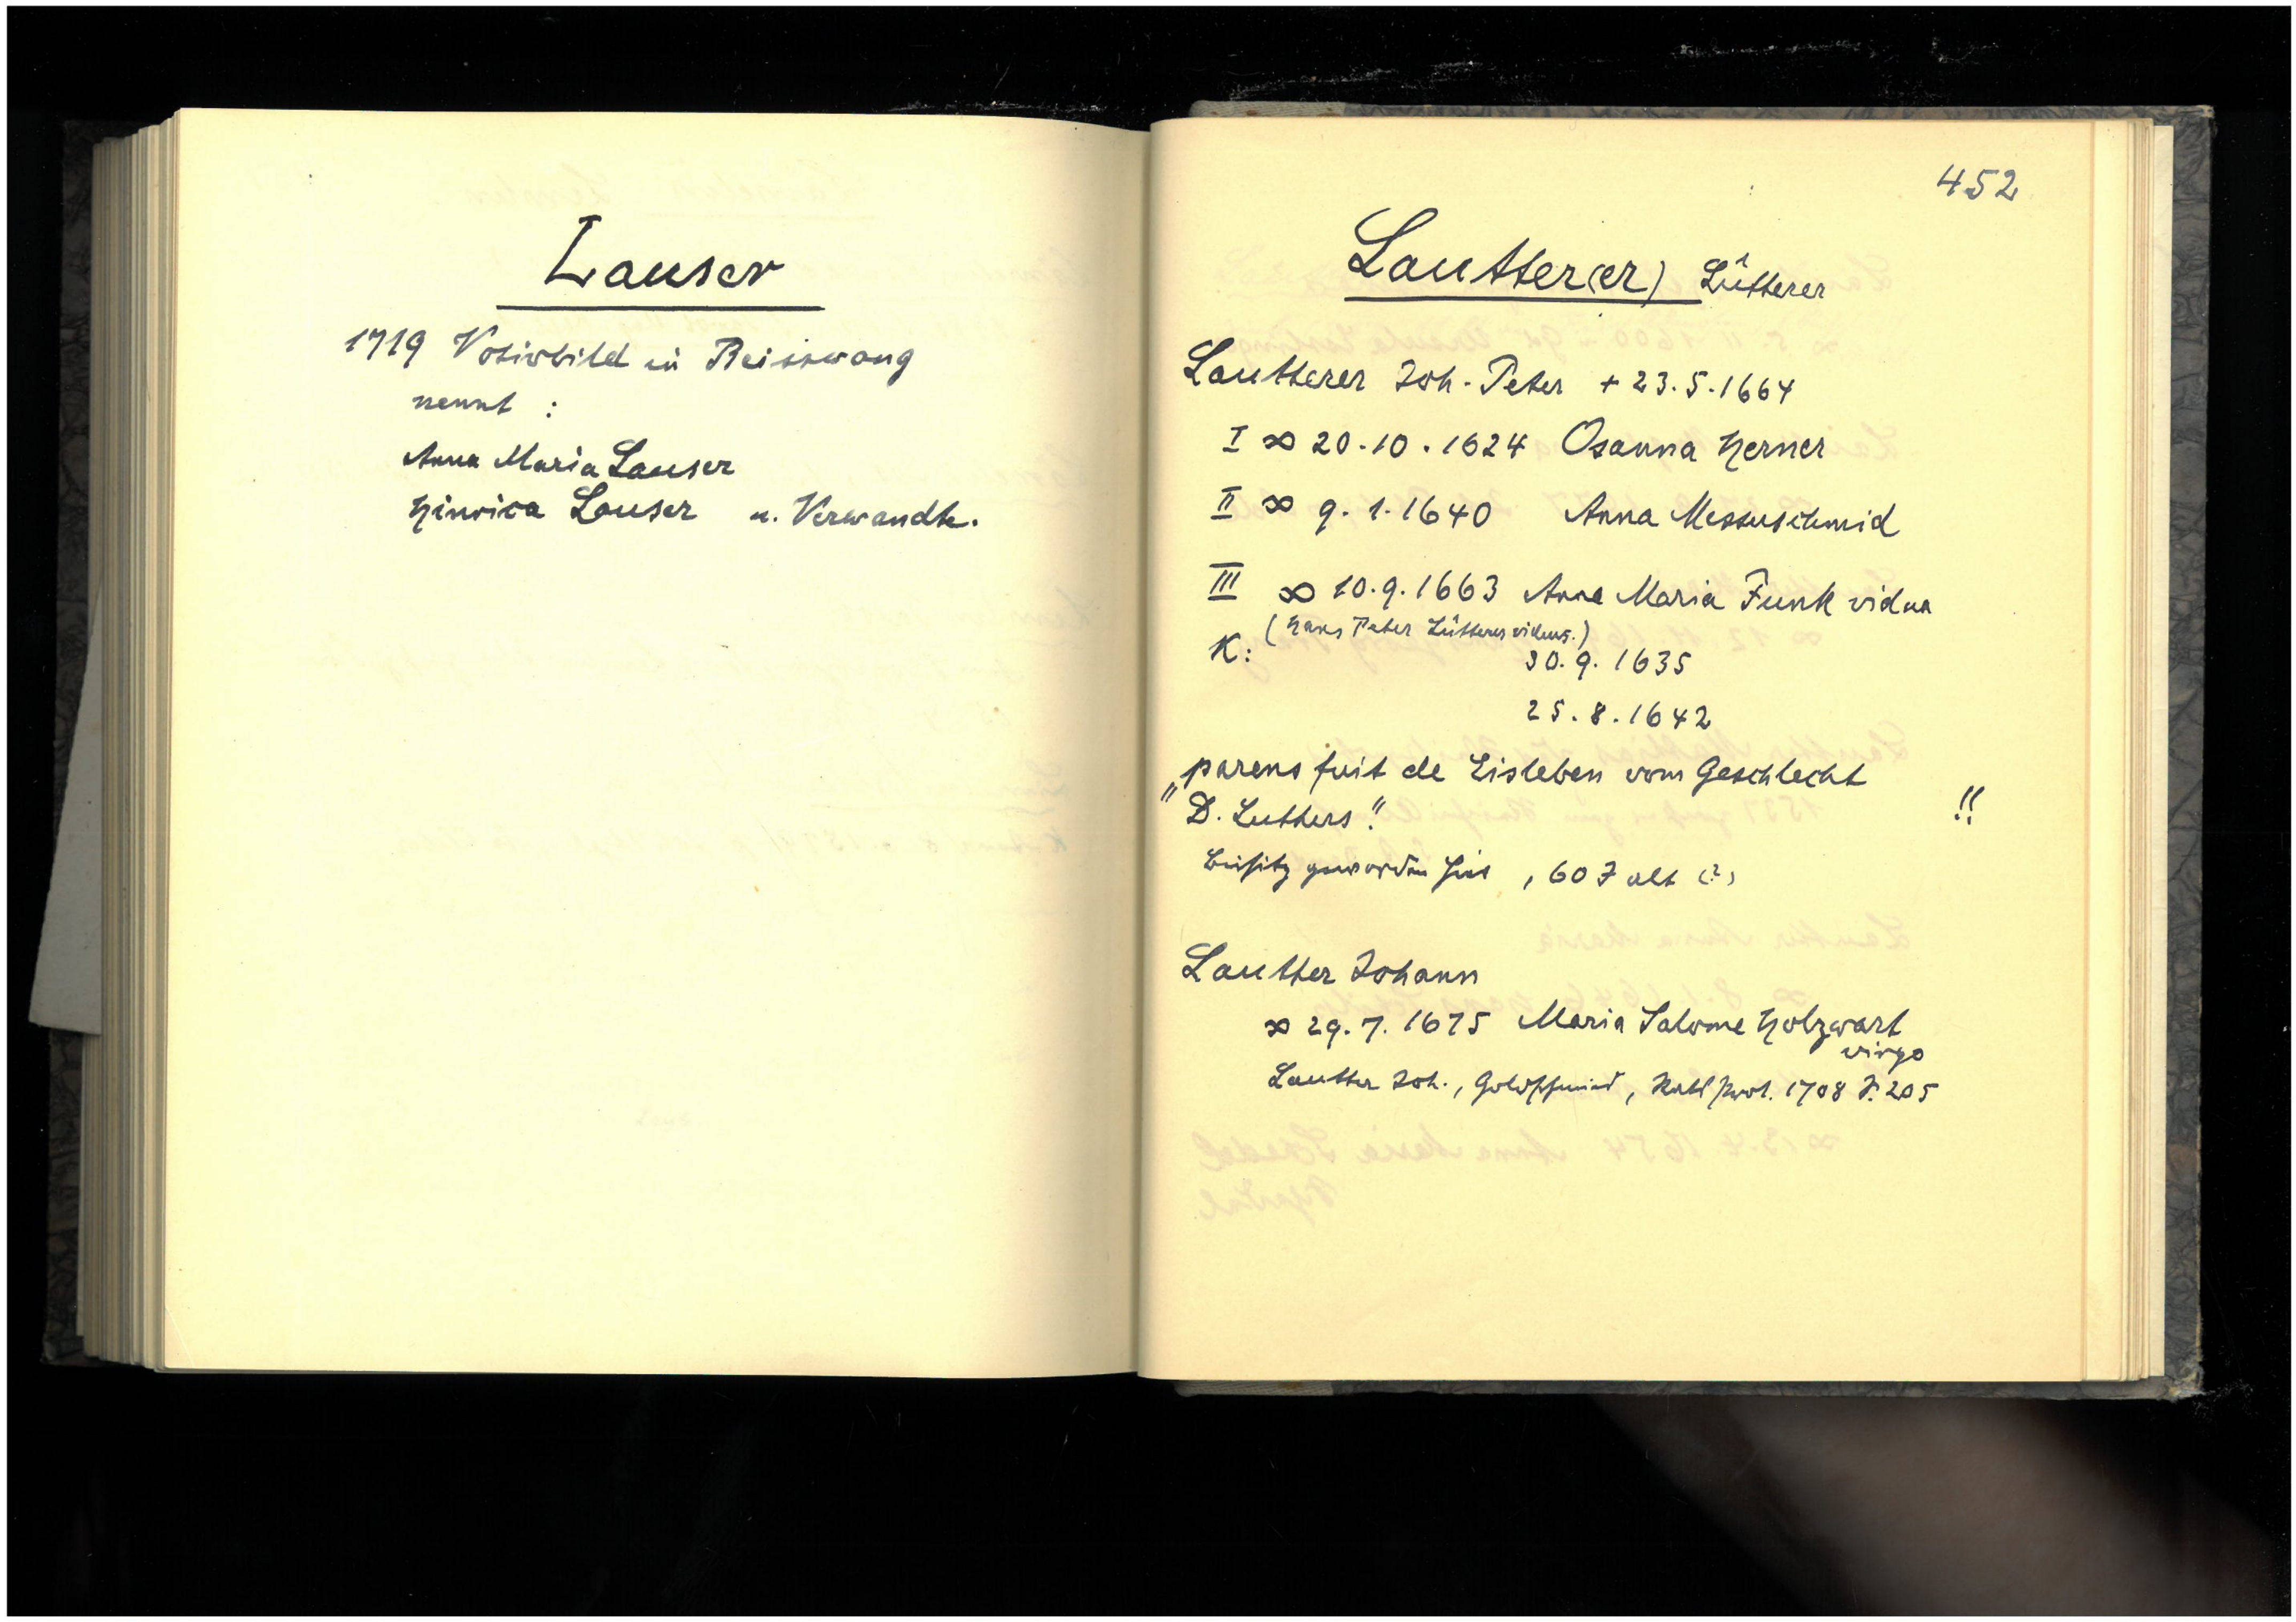 Lauser
1719 Votivbild in Beisswang
nennt :
Anna Maria Lauser
Hinrica Lauser u. Verwandte.
452
Lautter(er) Lütterer
Lautterer Joh. Peter + 23.5.1664
I ∞ 20.10.1624 Osanna Herner
II ∞ 9.1.1640 Anna Messuschmid
III ∞ 10.9.1663 Anna Maria Funk vidua
(Hans Peter Lütterer viduus.)
K: 30.9.1635
25.8.1642
"parens fuit de Eisleben vom Geschlecht
D. Luthers". !!
Beisitz geworden hier, 60 J alt (?)
Lautter Johann
∞ 29.7.1675 Maria Salome Holzwart
virgo
Lautter Joh., Goldschmied, Rats prot. 1708 S. 205